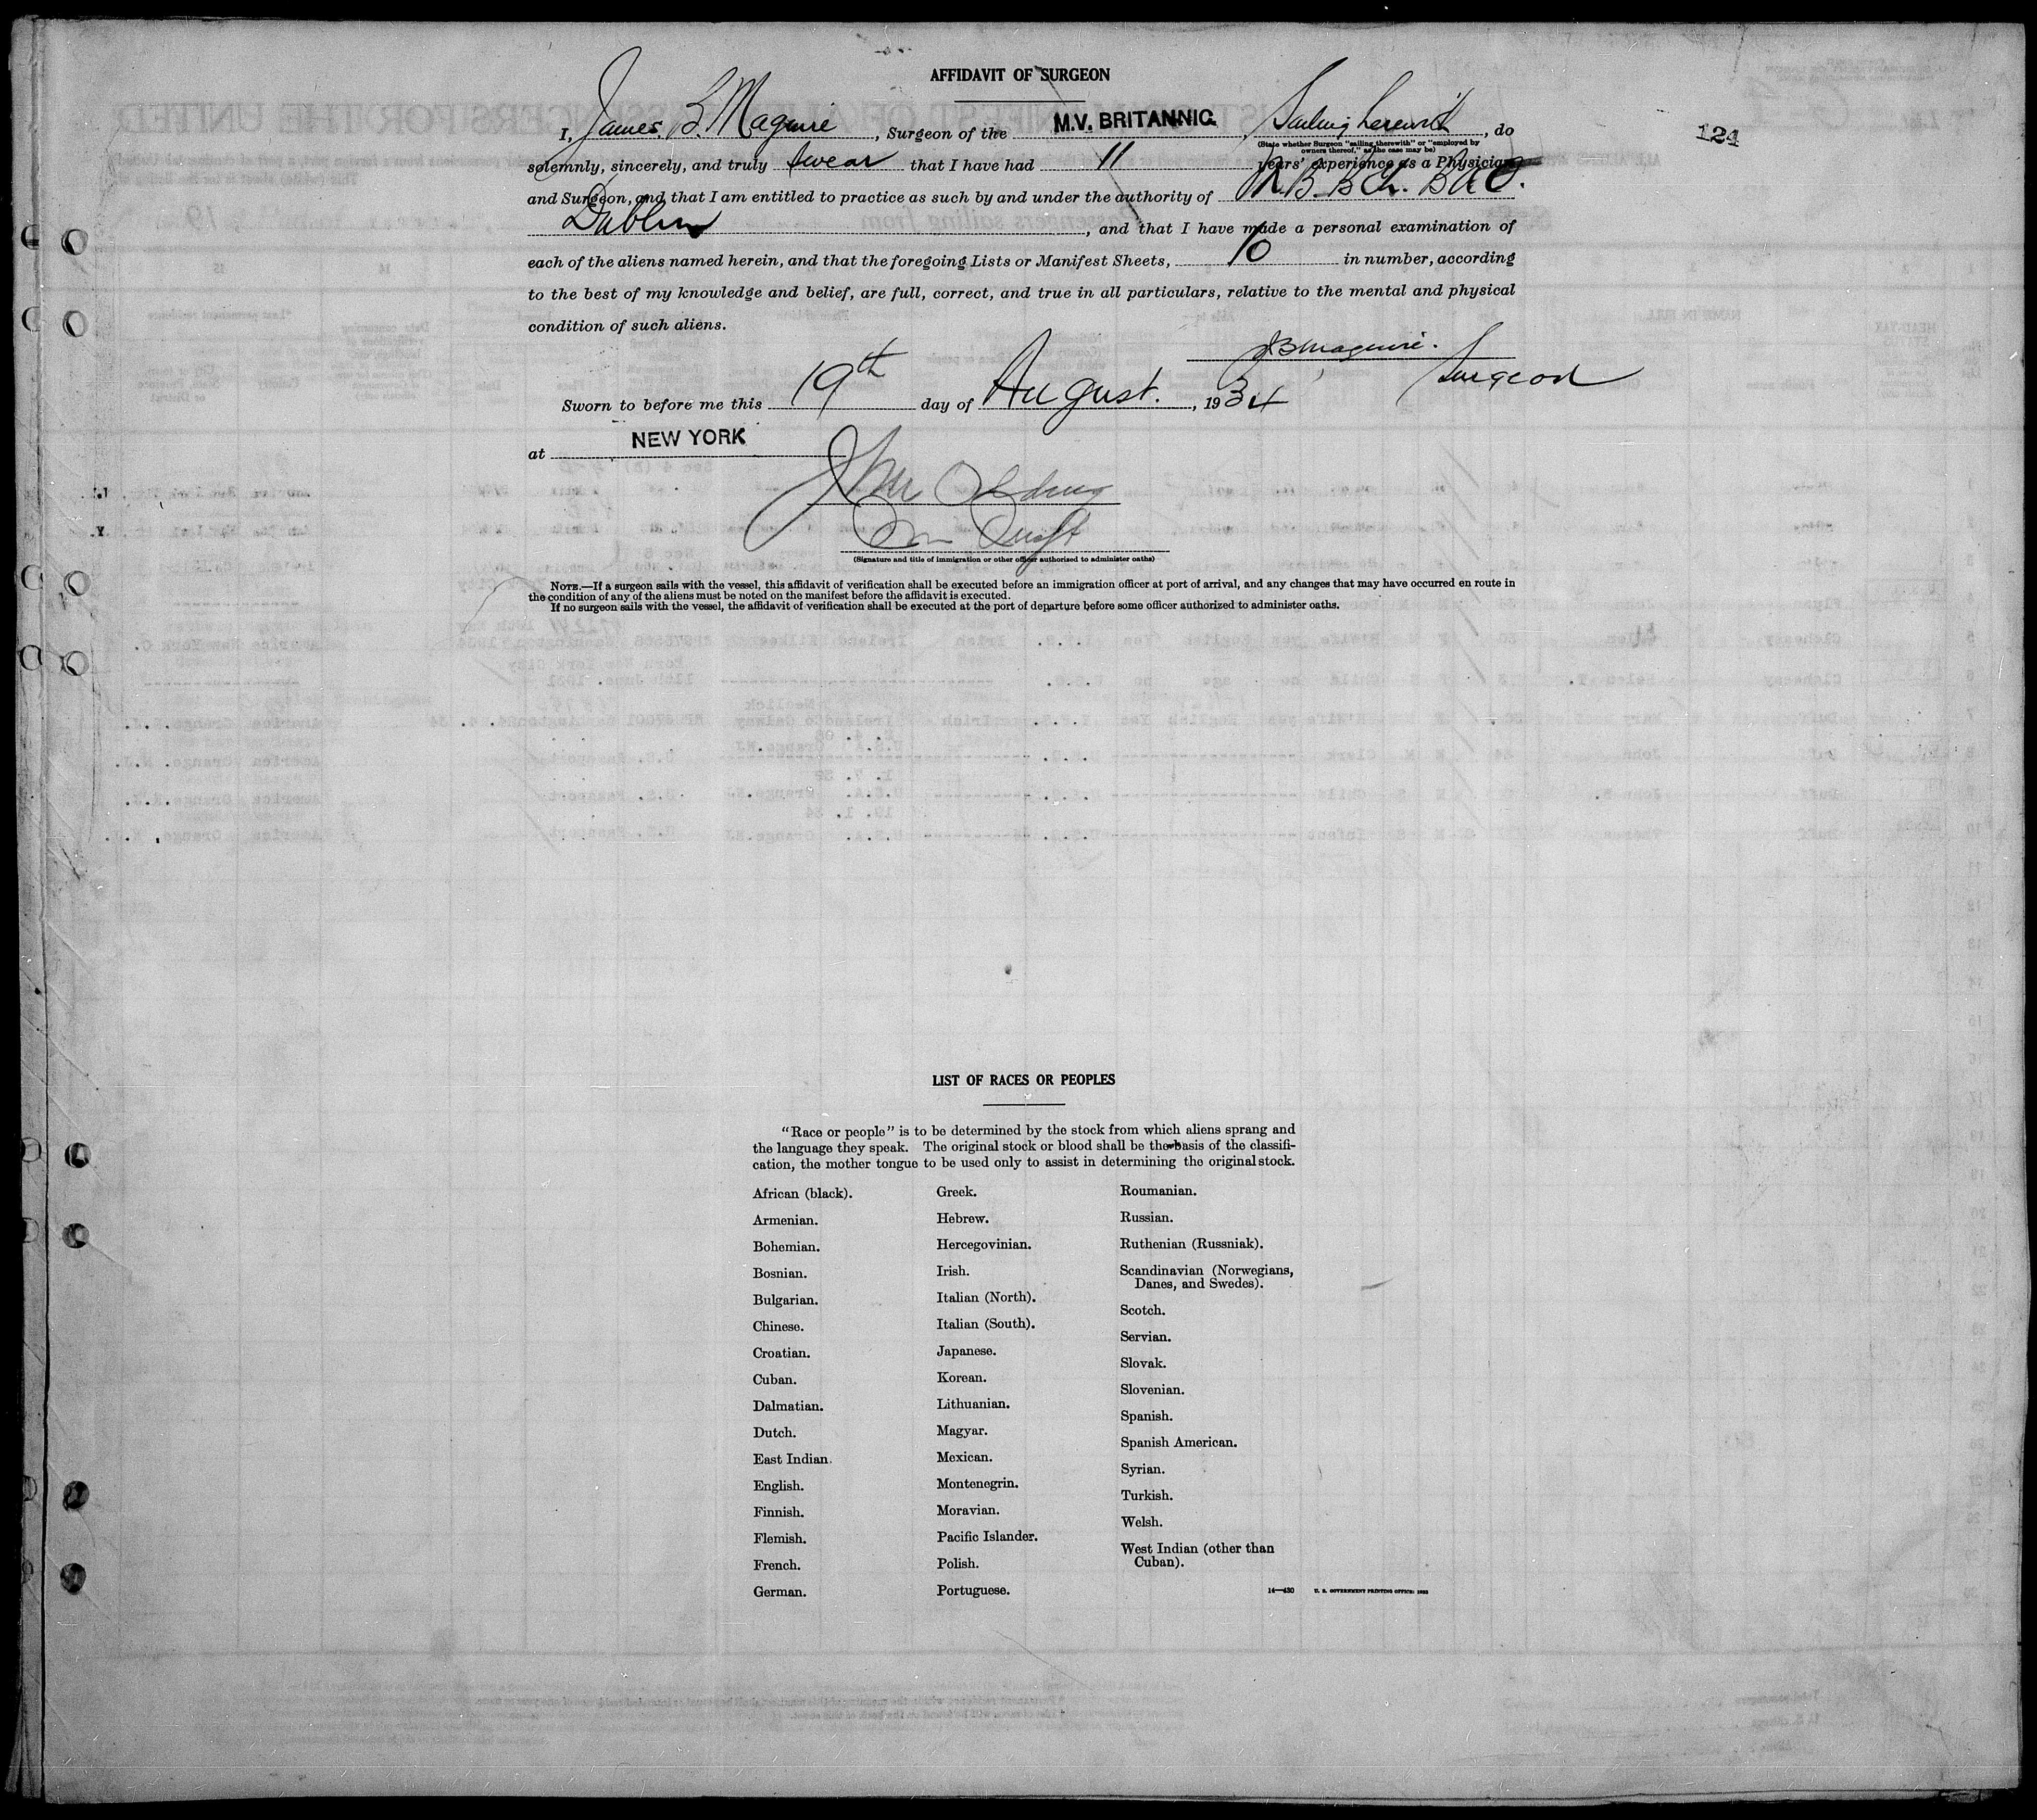 AFFIDAVIT OF SURGEON
I, James B. Maguire, Surgeon of the M.V. BRITANNIC, Sailing herewith, do
(State whether Surgeon "sailing therewith" or "employed by
owners thereof," as the case may be)
124
solemnly, sincerely, and truly swear that I have had 11 years' experience as a Physician
and Surgeon, and that I am entitled to practice as such by and under the authority of M.B. B.Ch. B.A.O.
Dublin, and that I have made a personal examination of
each of the aliens named herein, and that the foregoing Lists or Manifest Sheets, 10 in number, according
to the best of my knowledge and belief, are full, correct, and true in all particulars, relative to the mental and physical
condition of such aliens.
JB Maguire.
Surgeon
Sworn to before me this 19th day of August., 1934
at NEW YORK
(Signature and title of immigration or other officer authorized to administer oaths)
NOTE.—If a surgeon sails with the vessel, this affidavit of verification shall be executed before an immigration officer at port of arrival, and any changes that may have occurred en route in
the condition of any of the aliens must be noted on the manifest before the affidavit is executed.
If no surgeon sails with the vessel, the affidavit of verification shall be executed at the port of departure before some officer authorized to administer oaths.
LIST OF RACES OR PEOPLES
"Race or people" is to be determined by the stock from which aliens sprang and
the language they speak. The original stock or blood shall be the basis of the classifi-
cation, the mother tongue to be used only to assist in determining the original stock.
African (black).
Armenian.
Bohemian.
Bosnian.
Bulgarian.
Chinese.
Croatian.
Cuban.
Dalmatian.
Dutch.
East Indian.
English.
Finnish.
Flemish.
French.
German.
Greek.
Hebrew.
Hercegovinian.
Irish.
Italian (North).
Italian (South).
Japanese.
Korean.
Lithuanian.
Magyar.
Mexican.
Montenegrin.
Moravian.
Pacific Islander.
Polish.
Portuguese.
Roumanian.
Russian.
Ruthenian (Russniak).
Scandinavian (Norwegians,
Danes, and Swedes).
Scotch.
Servian.
Slovak.
Slovenian.
Spanish.
Spanish American.
Syrian.
Turkish.
Welsh.
West Indian (other than
Cuban).
14—430 U. S. GOVERNMENT PRINTING OFFICE: 1932